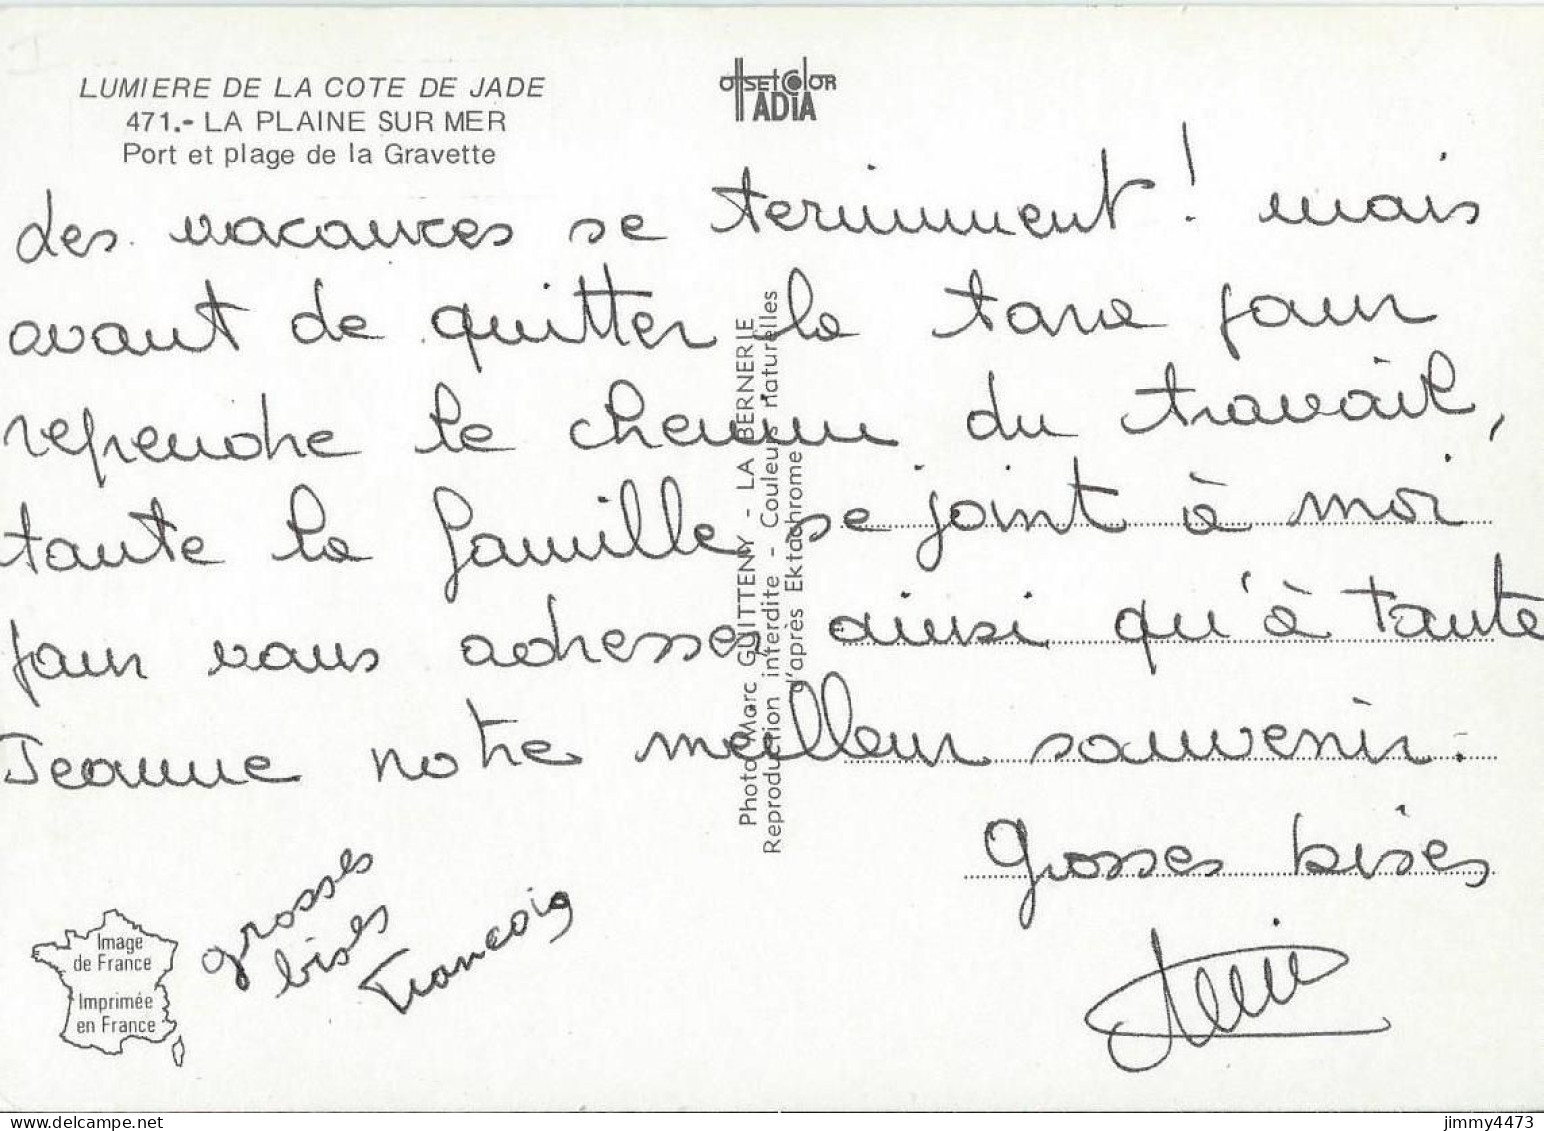 LUMIERE DE LA COTE DE JADE
471.- LA PLAINE SUR MER
Port et plage de la Gravette
OffSEt COlOR
ADIA
Les vacances se terminent ! mais
avant de quitter la
pour
reprendre le chemin du travail,
toute la famille se joint à moi
pour vous adresser ainsi qu'à tante
Jeanne notre meilleur souvenir.
Grosses bises
grosses
bises
François
Photo Marc GUITTENY - LA BERNERIE
Reproduction interdite - Couleurs naturelles
d'après Ektachrome
Image
de France
Imprimée
en France
jimmy4473
delcampe.net